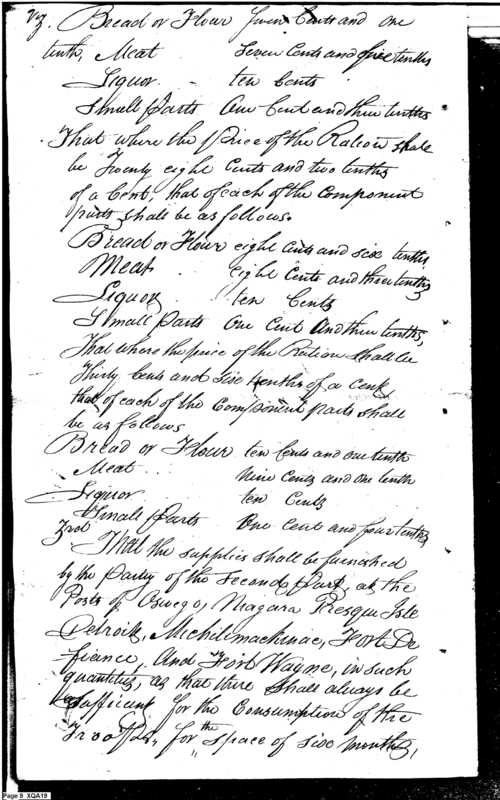 Viz. Bread or Flour Seven Cents and one
tenth, Meat Seven Cents and five tenths
Liquor ten Cents
Small Parts One Cent and three tenths
That where the Price of the Ration shall
be Twenty eight Cents and two tenths
of a Cent, that of each of the component
parts shall be as follows.
Bread or Flour eight Cents and six tenths
Meat eight Cents and three tenths
Liquor ten Cents
Small Parts One Cent And three tenths,
That where the price of the Ration shall be
Thirty Cents and Six tenths of a Cent,
that of each of the Component parts shall
be as follows
Bread or Flour ten Cents and one tenth
Meat Nine Cents and one tenth
Liquor ten Cents
Small Parts One Cent and four tenths,
That the supplies shall be furnished
by the Party of the Second Part, at the
Posts of Oswego, Niagara Presque Isle
Detroit, Michilimackinac, Fort De
fiance, And Fort Wayne, in such
quantities, as that there shall always be
sufficient for the Consumption of the
Troops, for the space of Six months,
Page 9 XQA19